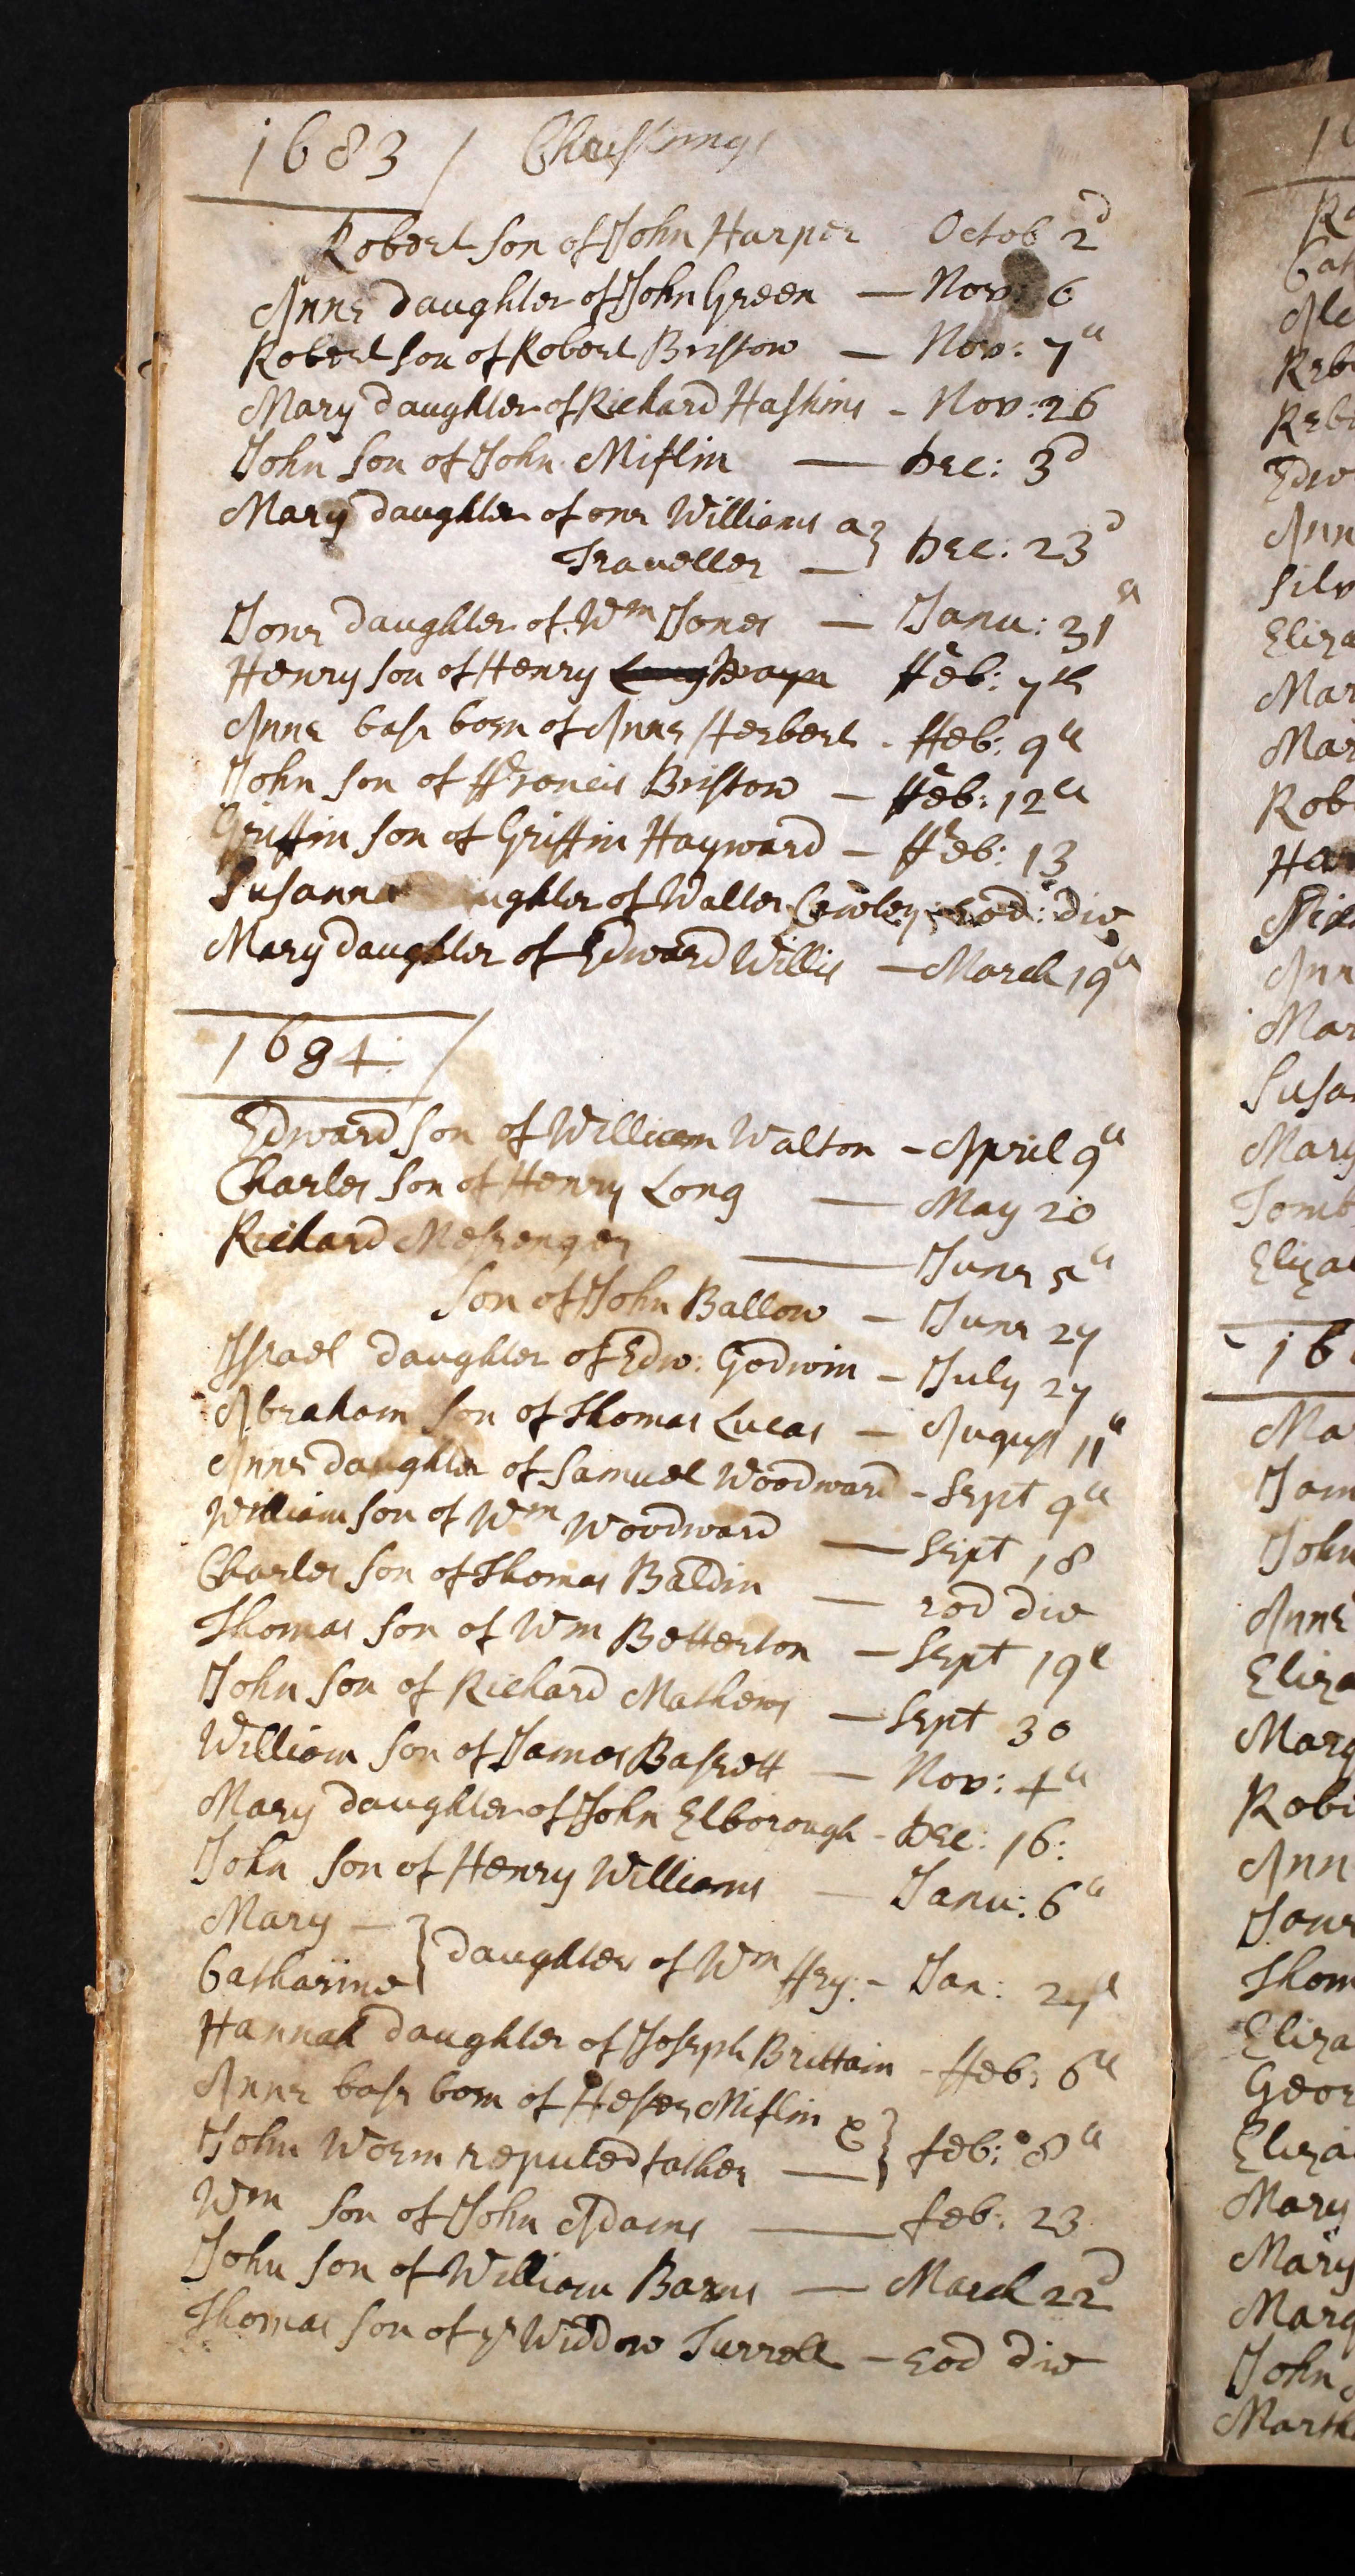 1683 / Christnings
Robert son of John Harper Octob 2d
Anne daughter of John Green — Nov: 6
Robert son of Robert Bristow — Nov: 7th
Mary daughter of Richard Haskins - Nov: 26
John son of John Miflin — Dec: 3d
Mary daughter of one Williams a } Dec: 23d
Traveller —
Jone daughter of Wm Jones — Janu: 31th
Henry son of Henry Long Feb: 7th
Anne base born of Anne Herbert - ffeb: 9th
John son of ffrancis Bristow — ffeb: 12th
Griffin son of Griffin Hayward — ffeb: 13
Susanna ughter of Walter Cowley eod: die
Mary daughter of Edward Willis — March 19th
1684 /
Edward son of William Walton - April 9th
Charles son of Henry Long — May 20
Richard Messenger — June 5th
Son of John Ballow — June 27
Israel daughter of Edw: Godwin — July 27
Abraham son of Thomas Lucas — August 11th
Anne daughter of Samuel Woodward - Sept 9th
William son of Wm Woodward — Sept 18
Charles son of Thomas Baldin — eod die
Thomas son of Wm Betterton — Sept 19th
John son of Richard Mathews — Sept 30
William son of James Bassett — Nov: 4th
Mary daughter of John Elborough - Dec: 16:
John son of Henry Williams — Janu: 6th
Mary — } daughters of Wm ffry: - Jan: 27th
Catharine
Hannah daughter of Joseph Brittain - ffeb: 6th
Anne base born of Hester Miflin & } feb: 8th
John Worm reputed father —
Wm son of John Adams — feb: 23
John son of William Barns — March 22d
Thomas son of ye Widdow Turrell — eod die
16
R
Cat
Ale
Rebe
Rebe
Edw
Ann
Silv
Eliza
Mar
Mar
Robe
Ha
Rich
Ann
Mar
Susa
Mary
Tomb
Elizab
16
Ma
Jam
John
Anne
Eliza
Marg
Robe
Ann
Jone
Thom
Eliza
Geor
Eliza
Mary
Mary
Marg
John
Martha